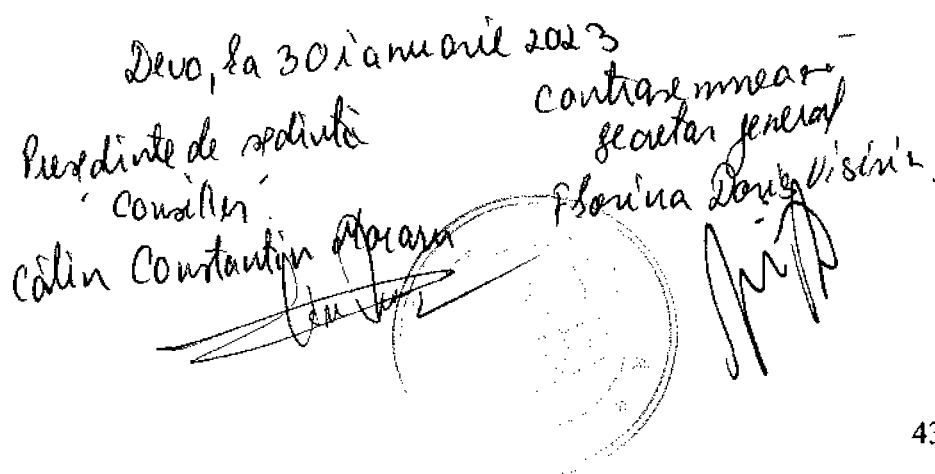 Deva, la 30 ianuarie 2023
Președinte de ședință
Consilier
Călin Constantin
Contrasemnează
secretar general
Florina Doris Visirin
43